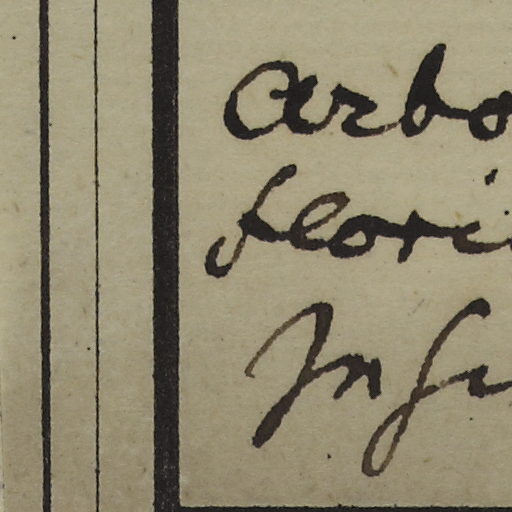 Arbo
flori
In Si